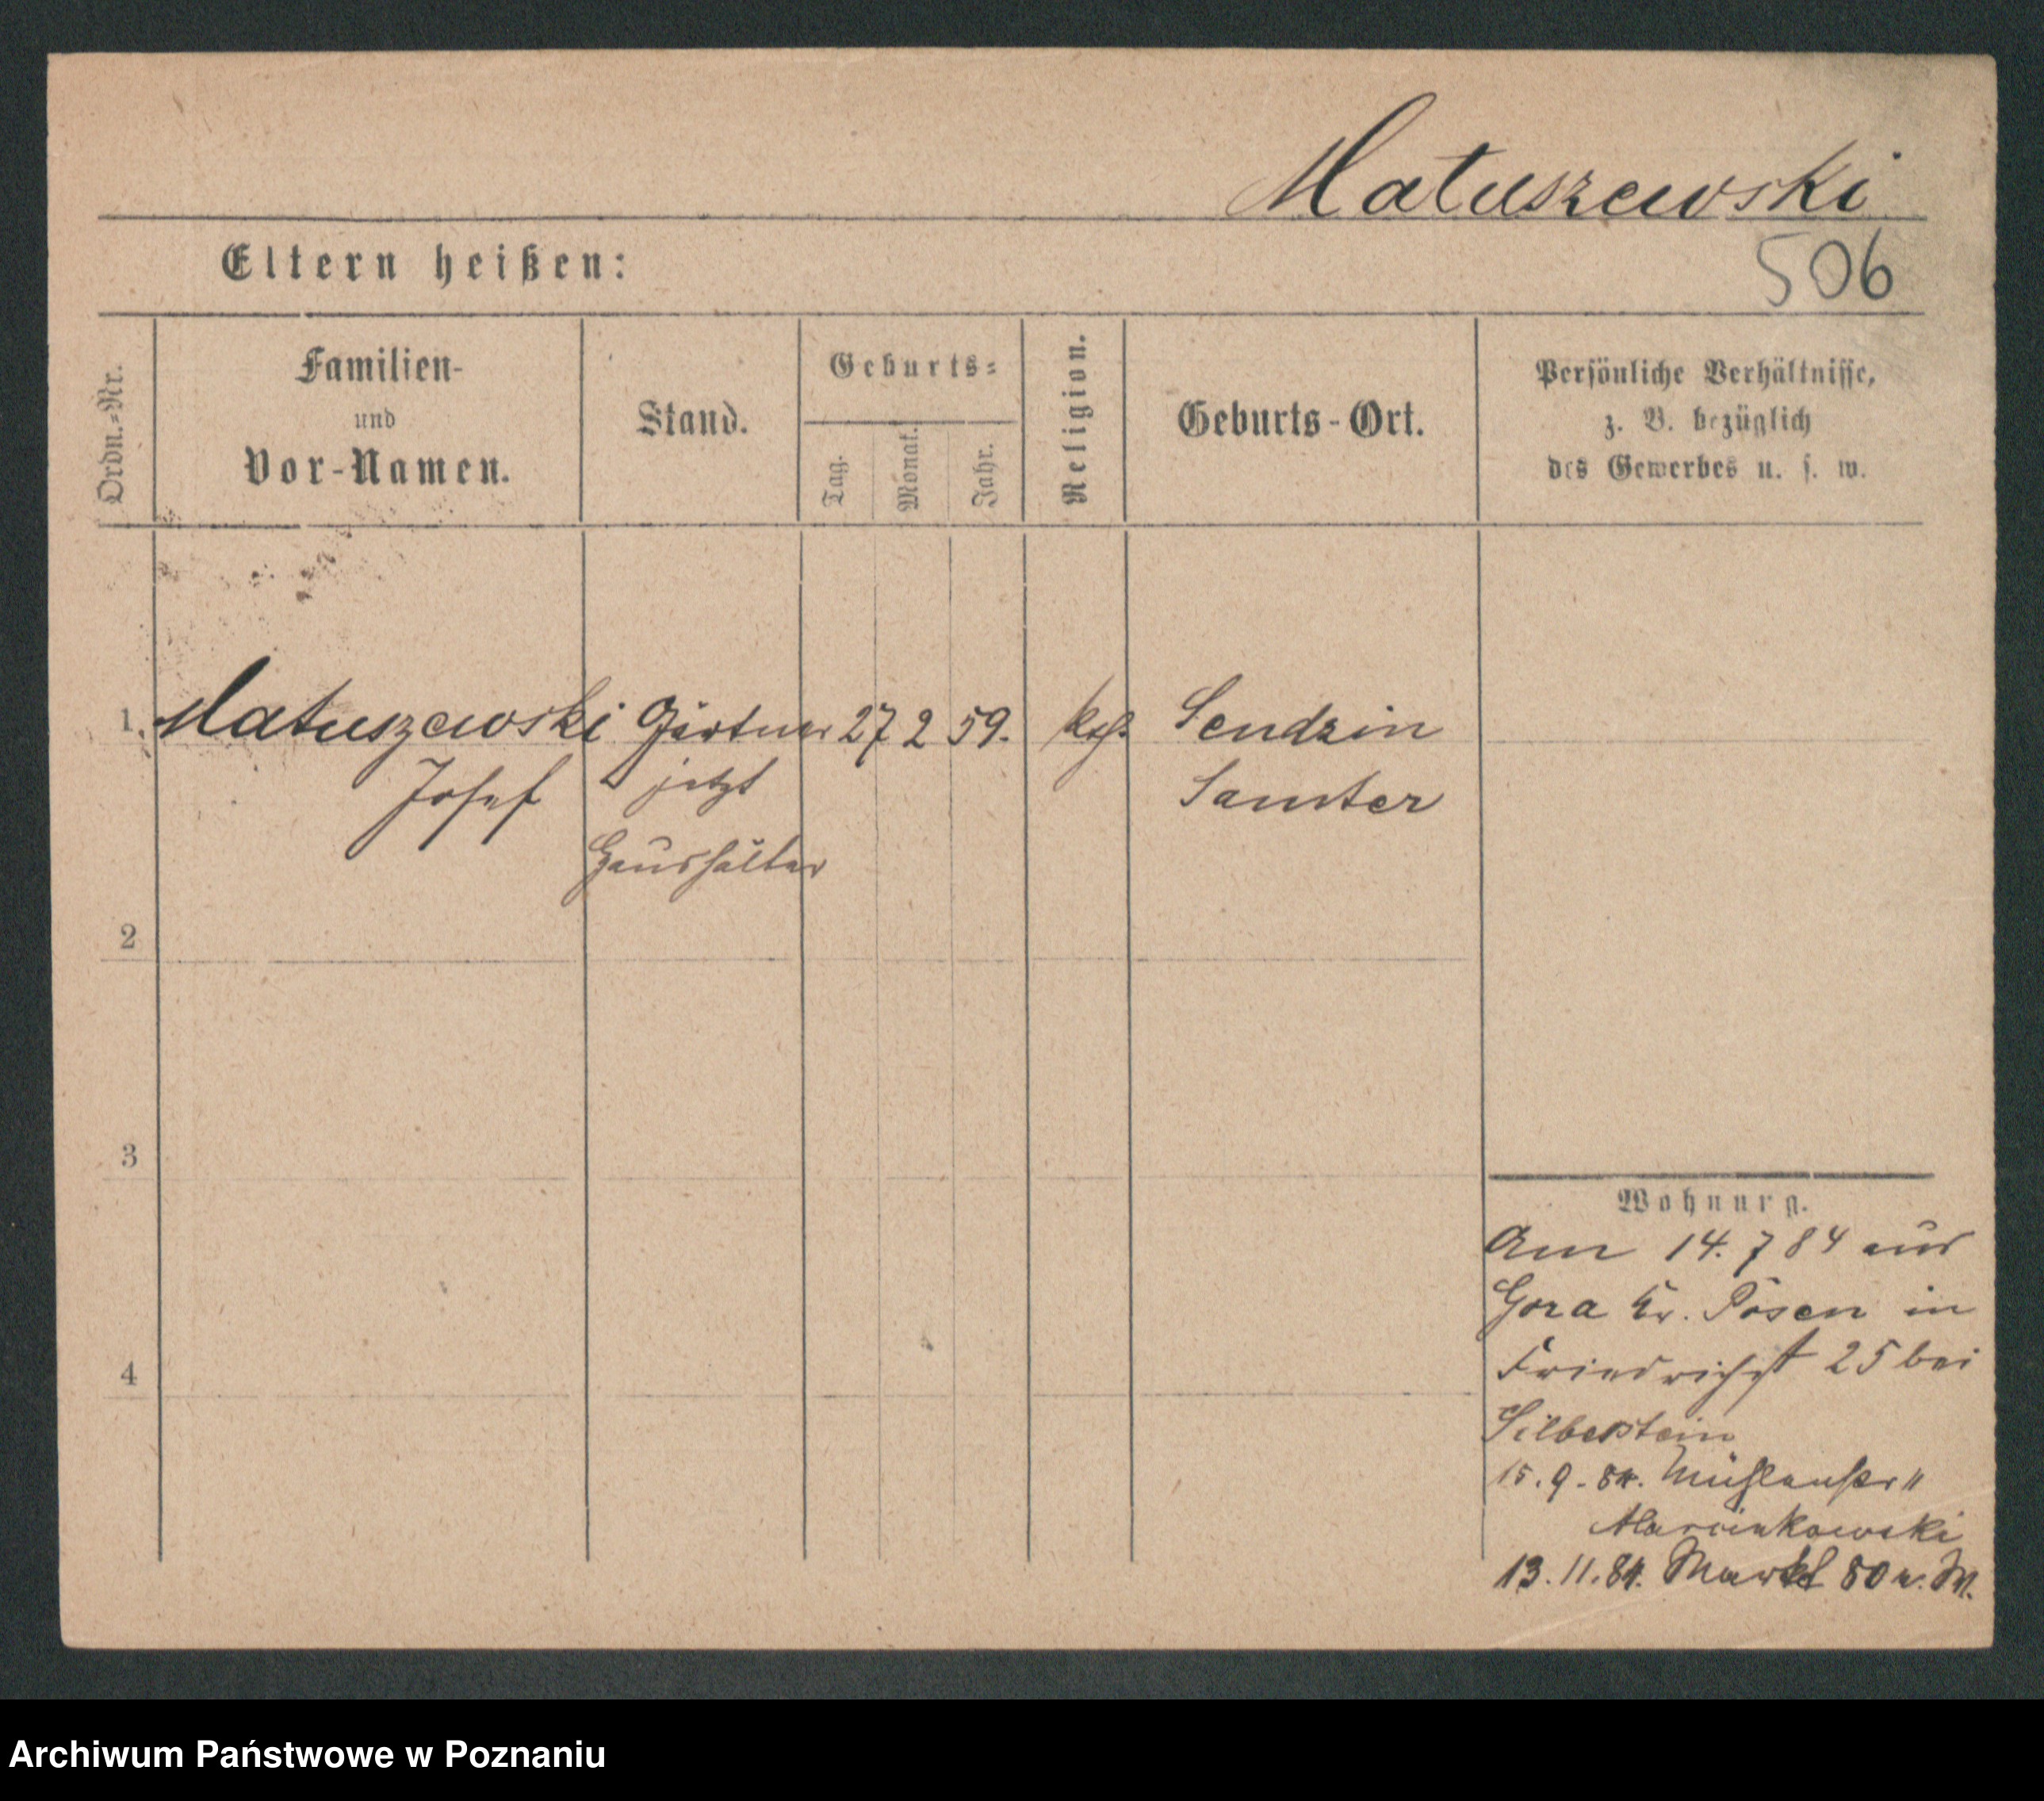 Matuszewski
506
Eltern heißen:
Ordn.=Nr.
Familien-
und
Vor-Namen.
Stand.
Geburts=
Tag.
Monat.
Jahr.
Religion.
Geburts-Ort.
Persönliche Verhältnisse,
z. B. bezüglich
des Gewerbes u. s. w.
1. Matuszewski Gärtner 27 2 59. kth. Sendzin
Josef jetzt Samter
Haushälter
2
3
4
Wohnung.
Am 14. 7 84 aus
Gora Kr. Posen in
Friedrichst 25 bei
Silberstein
15. 9. 84. Mühlenstr 11
Marcinkowski
13. 11. 84. Markt 80 n. M.
Archiwum Państwowe w Poznaniu